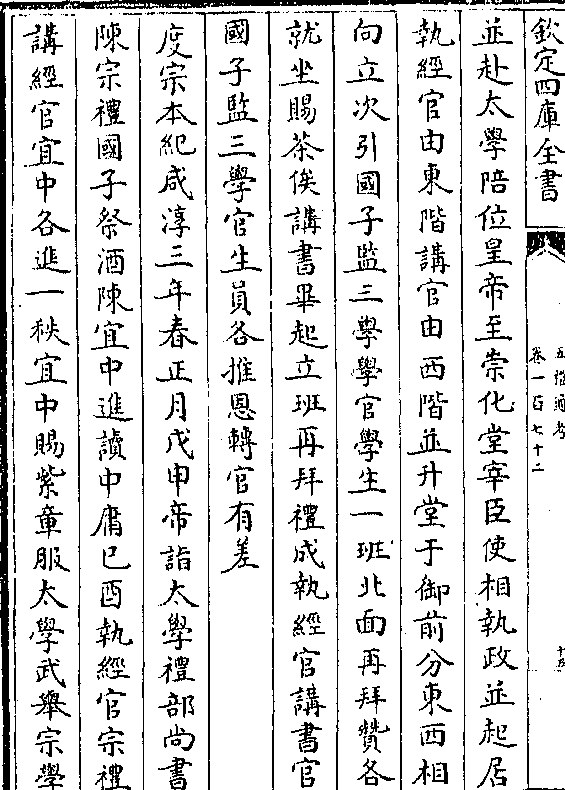 欽定四庫全書
五禮通考
卷一百七十二
十五
並赴太學陪位皇帝至崇化堂宰臣使相執政並起居
執經官由東階講官由西階並升堂于御前分東西相
向立次引國子監三學學官學生一班北面再拜贊各
就坐賜茶俟講書畢起立班再拜禮成執經官講書官
國子監三學官生員各推恩轉官有差
度宗本紀咸淳三年春正月戊申帝詣太學禮部尚書
陳宗禮國子祭酒陳宜中進讀中庸已酉執經官宗禮
講經官宜中各進一秩宜中賜紫章服太學武舉宗學